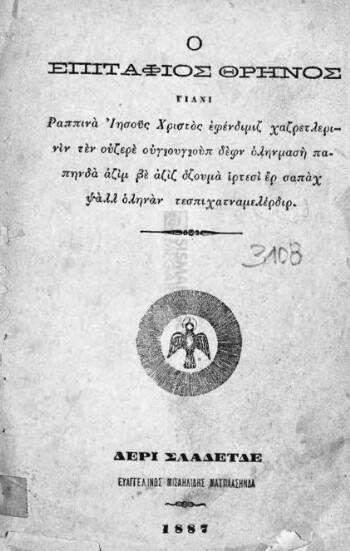 Ο
ΕΠΙΤΑΦΙΟΣ ΘΡΗΝΟΣ
ΓΙΑΝΙ
Ραππινὰ Ἰησοῦς Χριστὸς ἐφένδιμιζ χαζρετλερι-
νὶν τὲν οὐζερὲ οὐγιουγιοὺπ δὲφν ὀληνμασὴ πα-
πηνδὰ ἀζὶμ βὲ ἀζὶζ δζουμὰ ἰρτεσὶ ἒρ σαπὰχ
ψὰλλ ὀληνὰν τεσπιχατναμελέρδιρ.
3108
ΔΕΡΙ ΣΑΑΔΕΤΔΕ
ΕΥΑΓΓΕΛΙΝΟΣ ΜΙΣΑΗΛΙΔΗΣ ΜΑΤΠΑΑΣΗΝΔΑ
1887